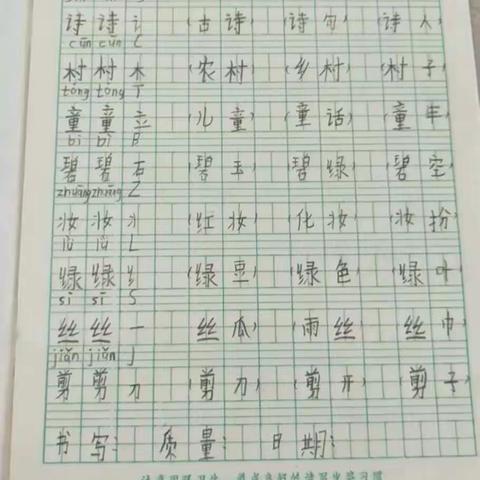 诗 诗 讠 (古诗) (诗句) (诗人)
cūn cūn C
村 村 木 (农村) (乡村) (村子)
tóng tóng T
童 童 立 (儿童) (童话) (童年)
bì bì B
碧 碧 石 (碧玉) (碧绿) (碧空)
zhuāng zhuāng Z
妆 妆 丬 (红妆) (化妆) (妆扮)
lǜ lǜ L
绿 绿 纟 (绿豆) (绿色) (绿叶)
sī sī S
丝 丝 一 (丝瓜) (雨丝) (丝巾)
jiǎn jiǎn J
剪 剪 刀 (剪刀) (剪开) (剪子)
书写: 质量: 日期: